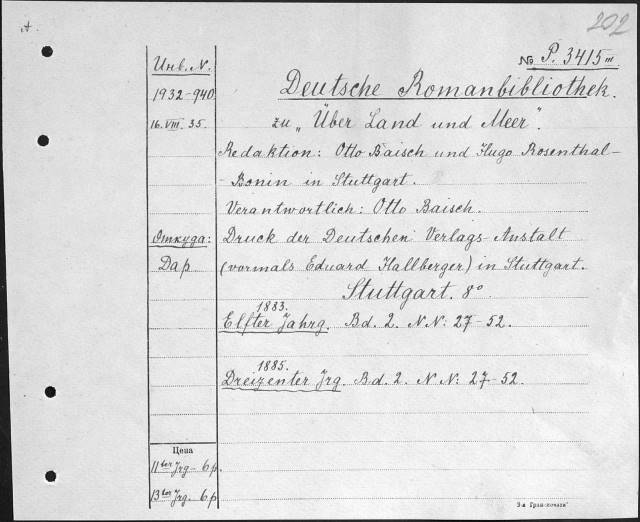 202
A.
№ P. 3415 III
Инв. N.
Deutsche Romanbibliothek.
1932-940
zu „Über Land und Meer".
16.VIII.35.
Redaktion: Otto Baisch und Hugo Rosenthal-
-Bonin in Stuttgart.
Verantwortlich: Otto Baisch.
Откуда:
Druck der Deutschen Verlags-Anstalt
Дар
(vormals Eduard Hallberger) in Stuttgart.
Stuttgart. 8°
1883.
Elfter Jahrg. Bd. 2. N N: 27-52.
1885.
Dreizenter Jrg. Bd. 2. N N: 27-52.
Цена
11ter Jrg - 6 р.
13ter Jrg. 6 р.